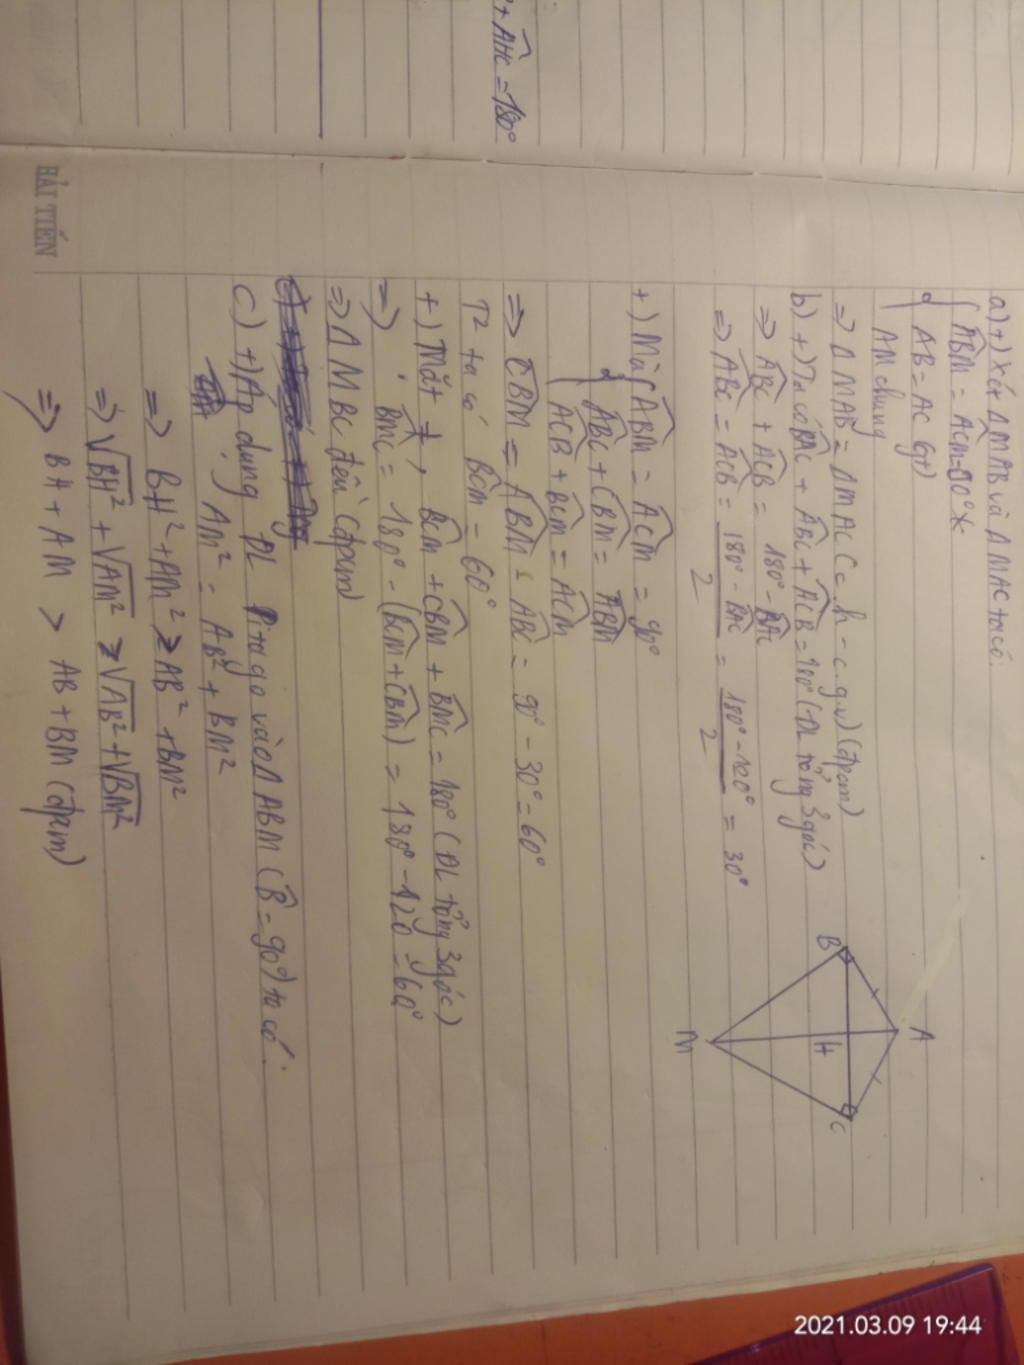 + AHC = 180°
HẢI TIẾN
a) +) Xét ΔMAB và ΔMAC ta có:
ABM = ACM = 90°
AB = AC (gt)
AM chung
=> ΔMAB = ΔMAC (c.h - c.g.v) (đpcm)
b) +) Ta có BAC + ABC + ACB = 180° (ĐL tổng 3 góc)
=> ABC + ACB = 180° - BAC
=> ABC = ACB = (180° - BAC)/2 = (180° - 120°)/2 = 30°
A
B
H
C
M
+) Mà ABM = ACM = 90°
ABC + CBM = ABM
ACB + BCM = ACM
=> CBM = ABM - ABC = 90° - 30° = 60°
T² ta có BCM = 60°
+) Mặt ≠, BCM + CBM + BMC = 180° (ĐL tổng 3 góc)
=> BMC = 180° - (BCM + CBM) = 180° - 120 = 60°
=> ΔMBC đều (đpcm)
c) +) Áp dụng ĐL Pitago vào ΔABM (B = 90°) ta có:
AM² = AB² + BM²
=> BH² + AM² ≥ AB² + BM²
=> √BH² + √AM² ≥ √AB² + √BM²
=> BH + AM > AB + BM (đpcm)
2021.03.09 19:44